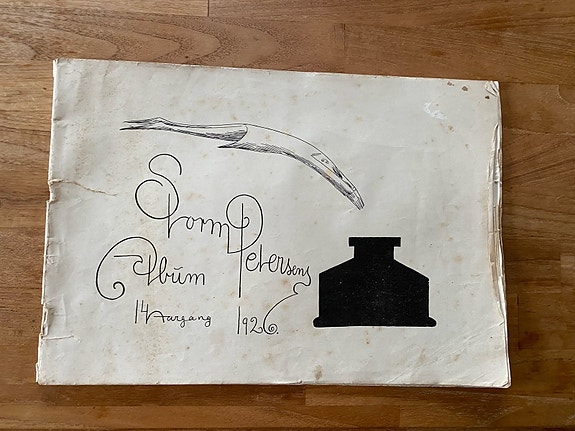 Storm Petersens
Album
14 Aargang 1926.